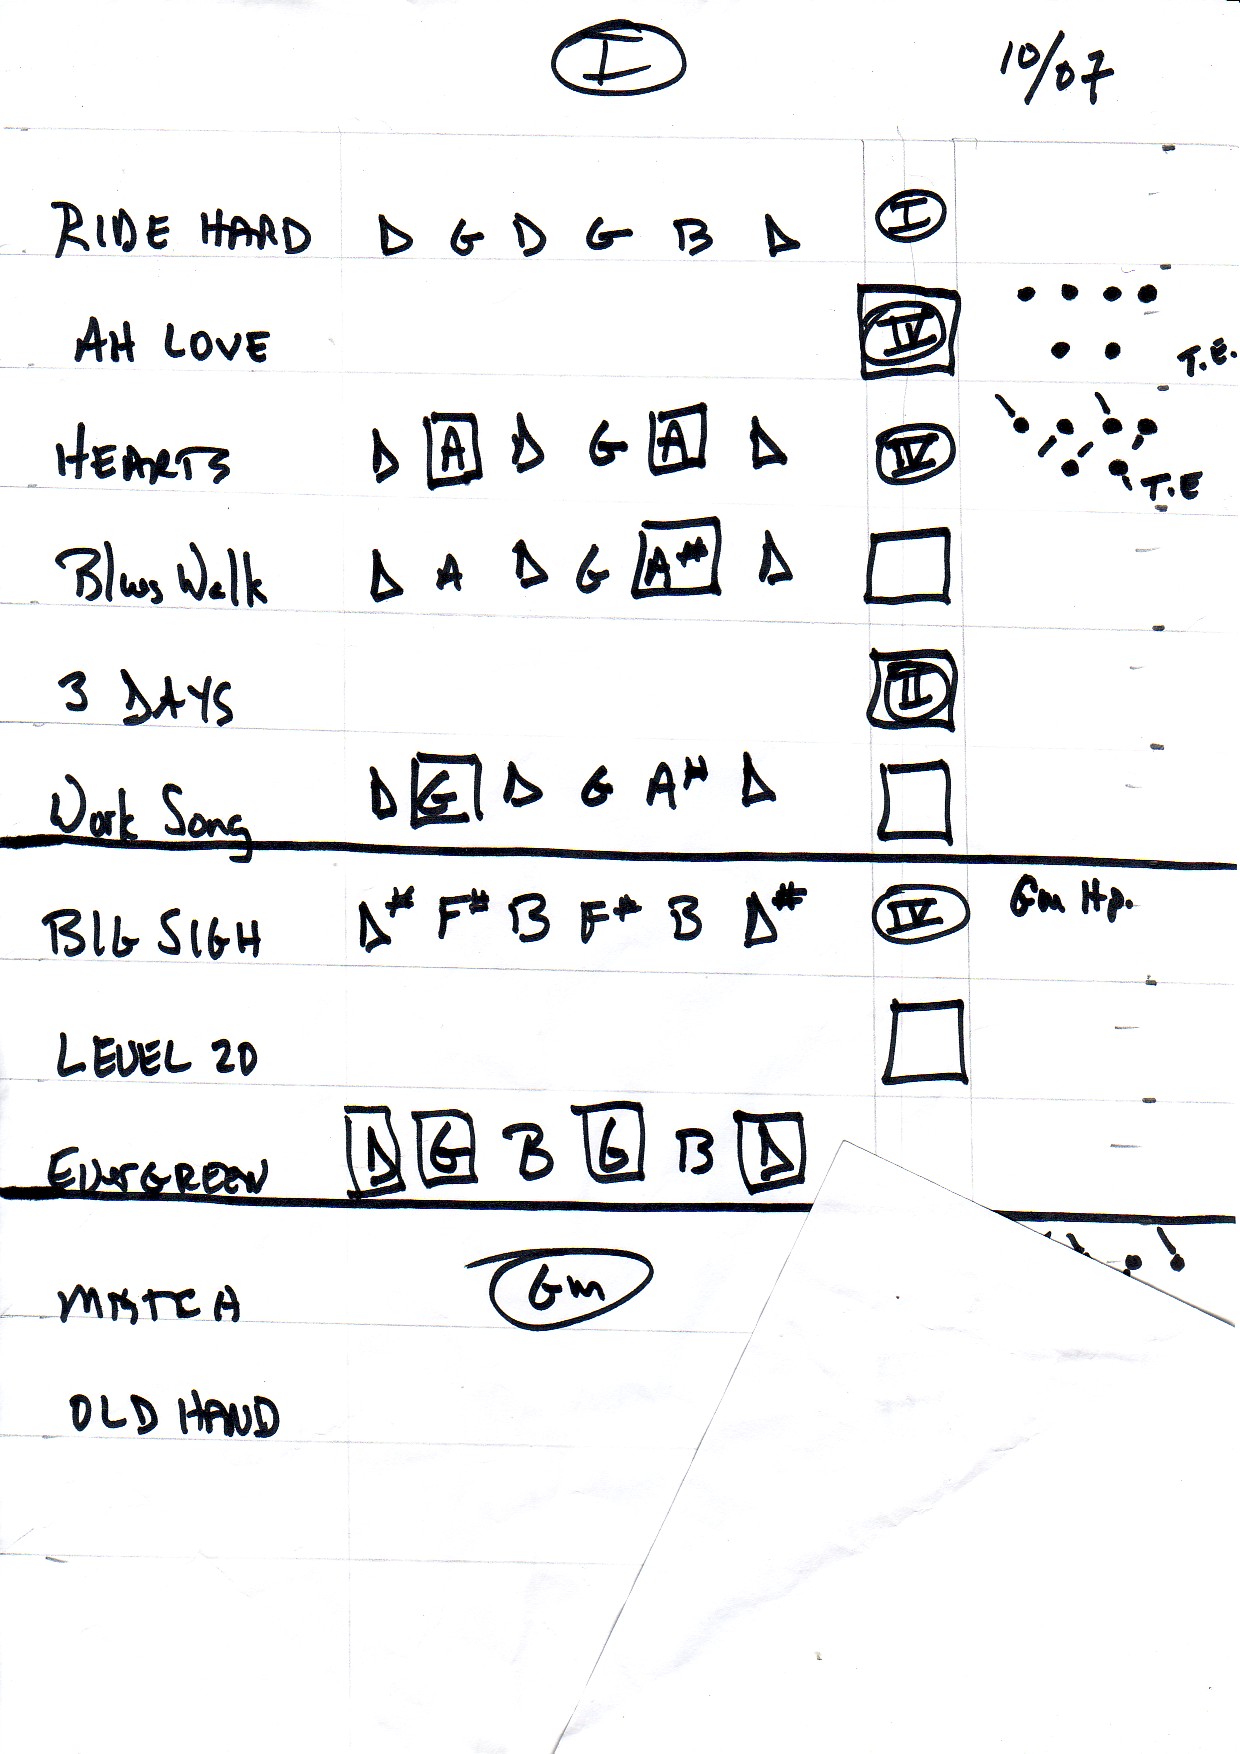 I 10/07
RIDE HARD D G D G B D I
AH LOVE IV T.E.
HEARTS D A D G A D IV T.E
Blues Walk D A D G A# D
3 DAYS II
Work Song D G D G A# D
BIG SIGH D# F# B F# B D# IV Gm Hp.
LEVEL 20
EVERGREEN D G B G B D
Gm
OLD HAND